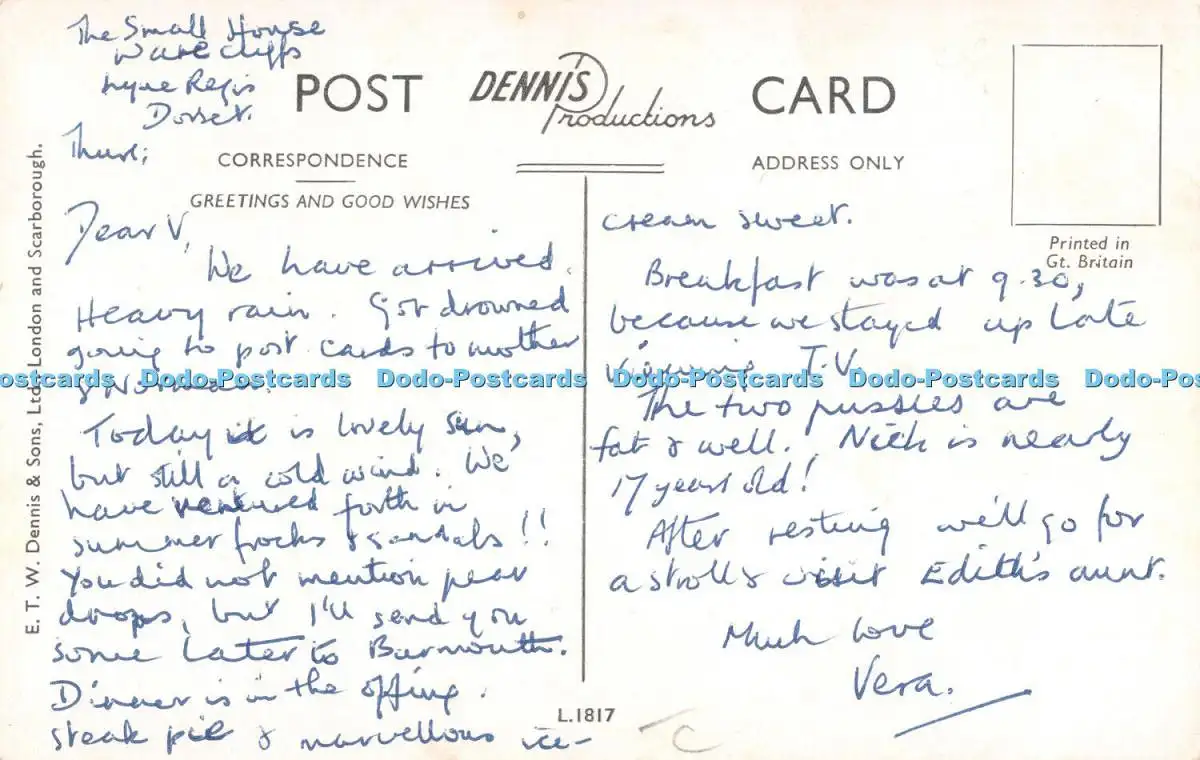 The Small House
Ware Cliffs
Lyme Regis
Dorset.
Thurs;
POST
DENNIS
Productions
CARD
CORRESPONDENCE
GREETINGS AND GOOD WISHES
ADDRESS ONLY
Printed in
Gt. Britain
E. T. W. Dennis & Sons, Ltd., London and Scarborough.
Dear V,
We have arrived.
Heavy rain. Got drowned
going to post cards to mother
& Norman.
Today it is lovely sun,
but still a cold wind. We
have ventured forth in
summer frocks & sandals!!
You did not mention pear
drops, but I'll send you
some later to Barmouth.
Dinner is in the offing.
steak pie & marvellous ice-
cream sweet.
Breakfast was at 9.30,
because we stayed up late
viewing T.V.
The two pussies are
fat & well. Nick is nearly
17 years old!
After resting we'll go for
a stroll & visit Edith's aunt.
Much love
Vera.
L.1817
C
Dodo-Postcards Dodo-Postcards Dodo-Postcards Dodo-Postcards Dodo-Postcards